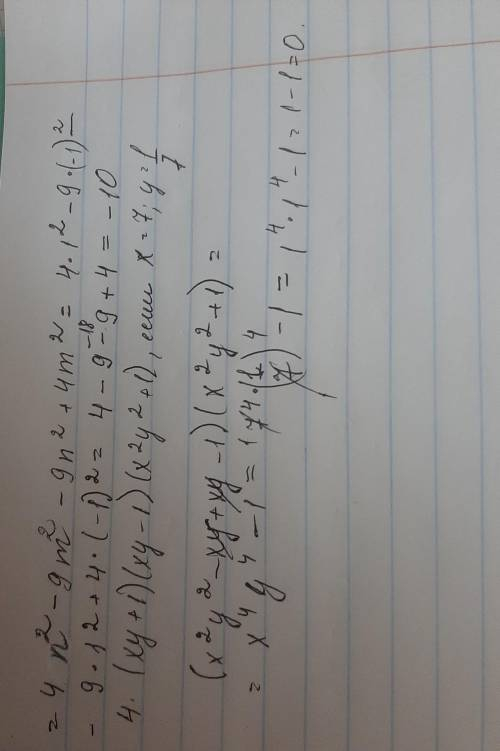 = 4n² - 9m² - 9n² + 4m² = 4·1² - 9·(-1)² -
- 9·1² + 4·(-1)² = 4 - 9 - 9 + 4 = -10
-18
4. (xy+1)(xy-1)(x²y²+1), если x = 7; y = 1/7
(x²y² - xy + xy - 1)(x²y² + 1) =
= x⁴y⁴ - 1 = 7⁴·(1/7)⁴ - 1 = 1⁴·1⁴ - 1 = 1 - 1 = 0.